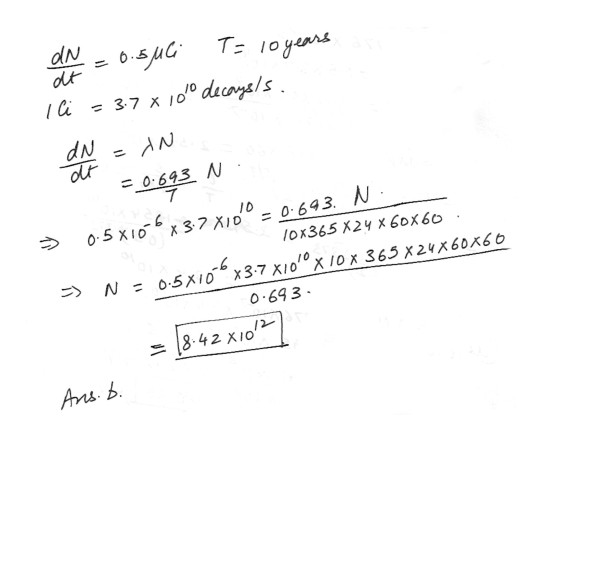 dN/dt = 0.5 μCi T = 10 years
1 Ci = 3.7 × 10^10 decays/s.
dN/dt = λN
= 0.693/T N.
⇒ 0.5×10^-6 × 3.7 × 10^10 = 0.693. N. / 10×365×24×60×60.
⇒ N = 0.5×10^-6 × 3.7 × 10^10 × 10 × 365 × 24 × 60 × 60 / 0.693.
= 8.42 × 10^12
Ans. b.